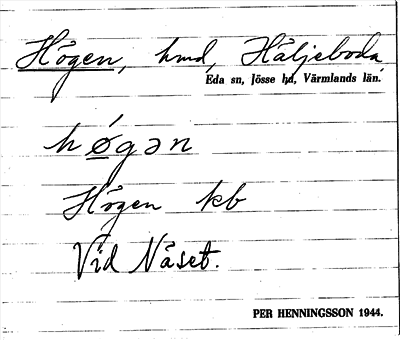 Högen, hmd, Håljeboda
Eda sn, Jösse hd, Värmlands län.
hø̀gən
Högen kb
Vid Nåset.
PER HENNINGSSON 1944.